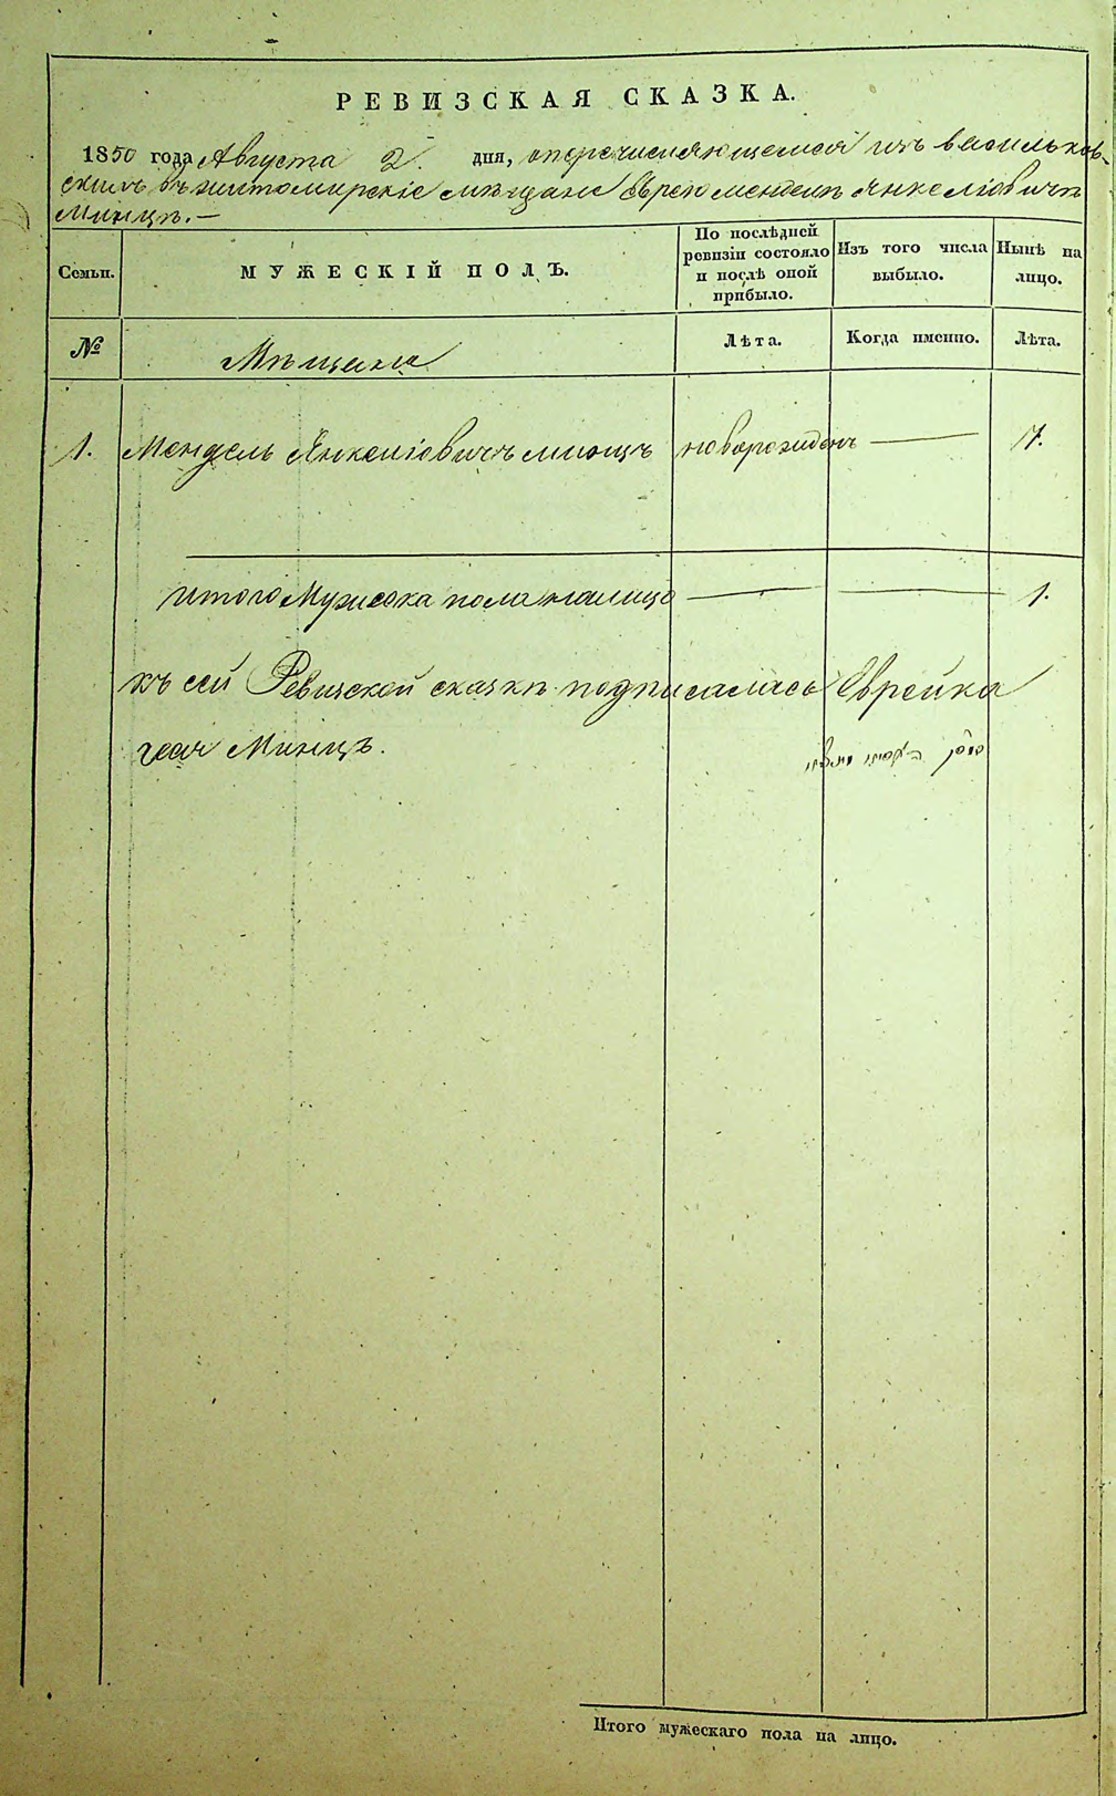 РЕВИЗСКАЯ СКАЗКА.
1850 года Августа 2 дня, оперечисляющемся изъ васильков-
скихъ въ житомирскіе мѣщане Еврею Менделѣ Янкеліовичѣ
Минцѣ.—
Семьи.
МУЖЕСКІЙ ПОЛЪ.
По послѣдней
ревизіи состояло
и послѣ оной
прибыло.
Изъ того числа
выбыло.
Нынѣ на
лицо.
№
Мѣщане
Лѣта.
Когда именно.
Лѣта.
1. Мендель Янкеліовичъ Минцъ новорожденъ — 17.
Итого Мужеска пола налицо — — 1.
къ сей Ревизской сказкѣ подписалась Еврейка
Минцъ.
Итого мужескаго пола на лицо.